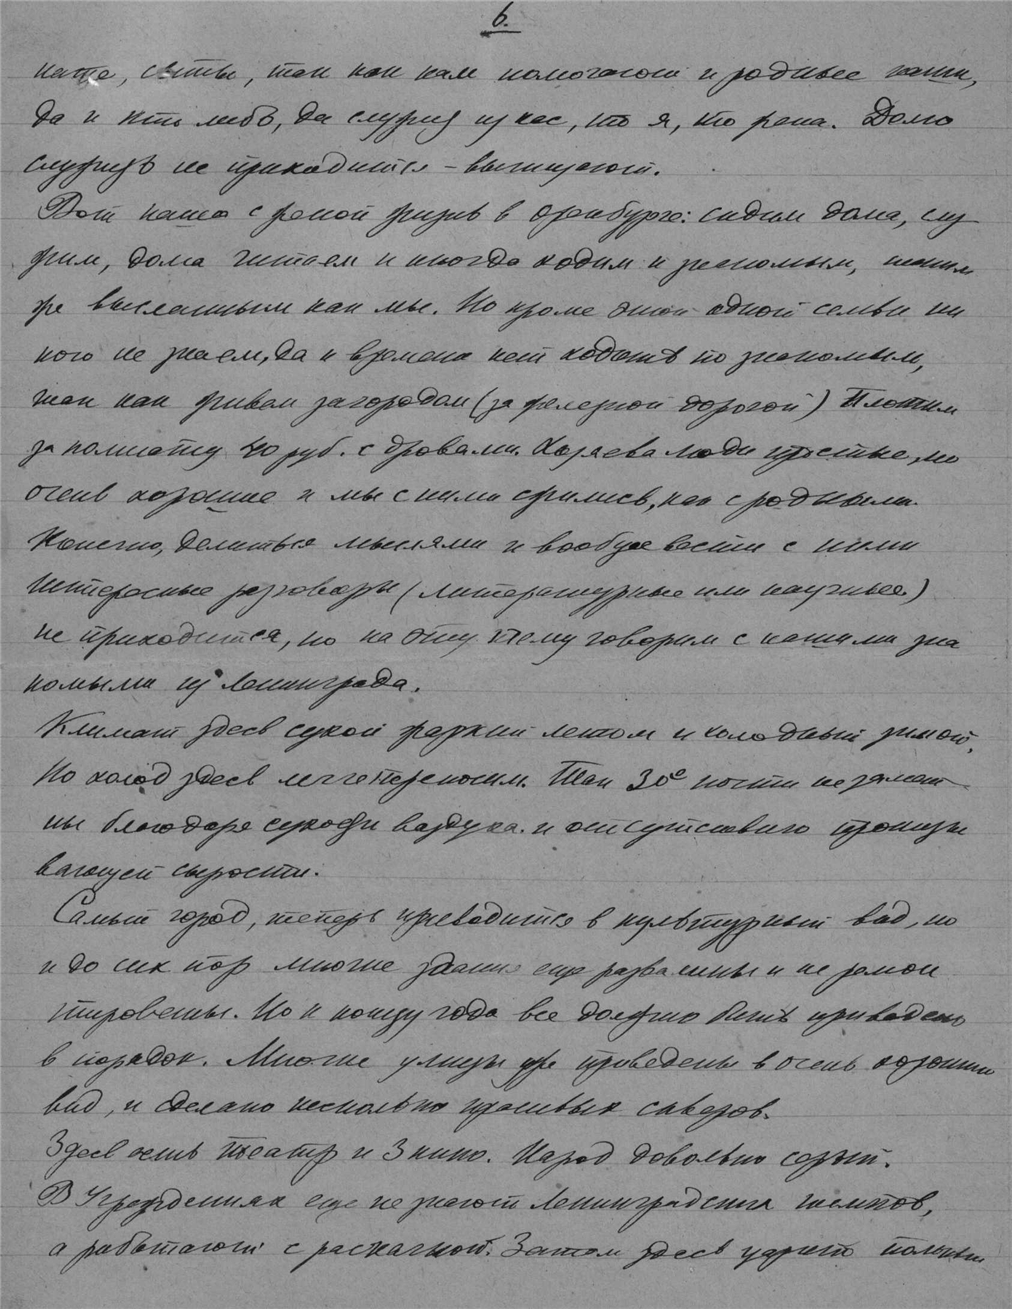 6.
наша, сыты, так как нам помогают и родные наши,
да и кто либо, да служит из нас, то я, то жена. Долго
служить не приходится – вычищают.
Вот наша с женой жизнь в Оренбурге: сидим дома, слу
жим, дома читаем и иногда ходим к знакомым, таким
же высланным как мы. Но кроме этой одной семьи ни
кого не знаем, да и времени нет ходить по знакомым,
так как живем загородом (за железной дорогой) Платим
за комнату 40 руб. с дровами. Хозяева люди простые, но
очень хорошие и мы с ними сжились, как с родными.
Конечно, делиться мыслями и вообще вести с ними
интересные разговоры (литературные или научные)
не приходится, но на эту тему говорим с нашими зна
комыми из Ленинграда.
Климат здесь сухой жаркий летом и холодный зимой,
Но холод здесь легче переносим. Так 30° почти не замет
ны благодаря сухости воздуха и отсутствию пронизы
вающей сырости.
Самый город, теперь приводится в культурный вид, но
и до сих пор многие здания еще развалины и не ремон
тированы. Но к концу года все должно быть приведено
в порядок. Многие улицы уже приведены в очень хороший
вид, и сделано несколько красивых скверов.
Здесь есть театр и 3 кино. Народ довольно серый.
В Учреждениях еще не знают Ленинградских темпов,
а работают с раскачкой. Затем здесь царит полный